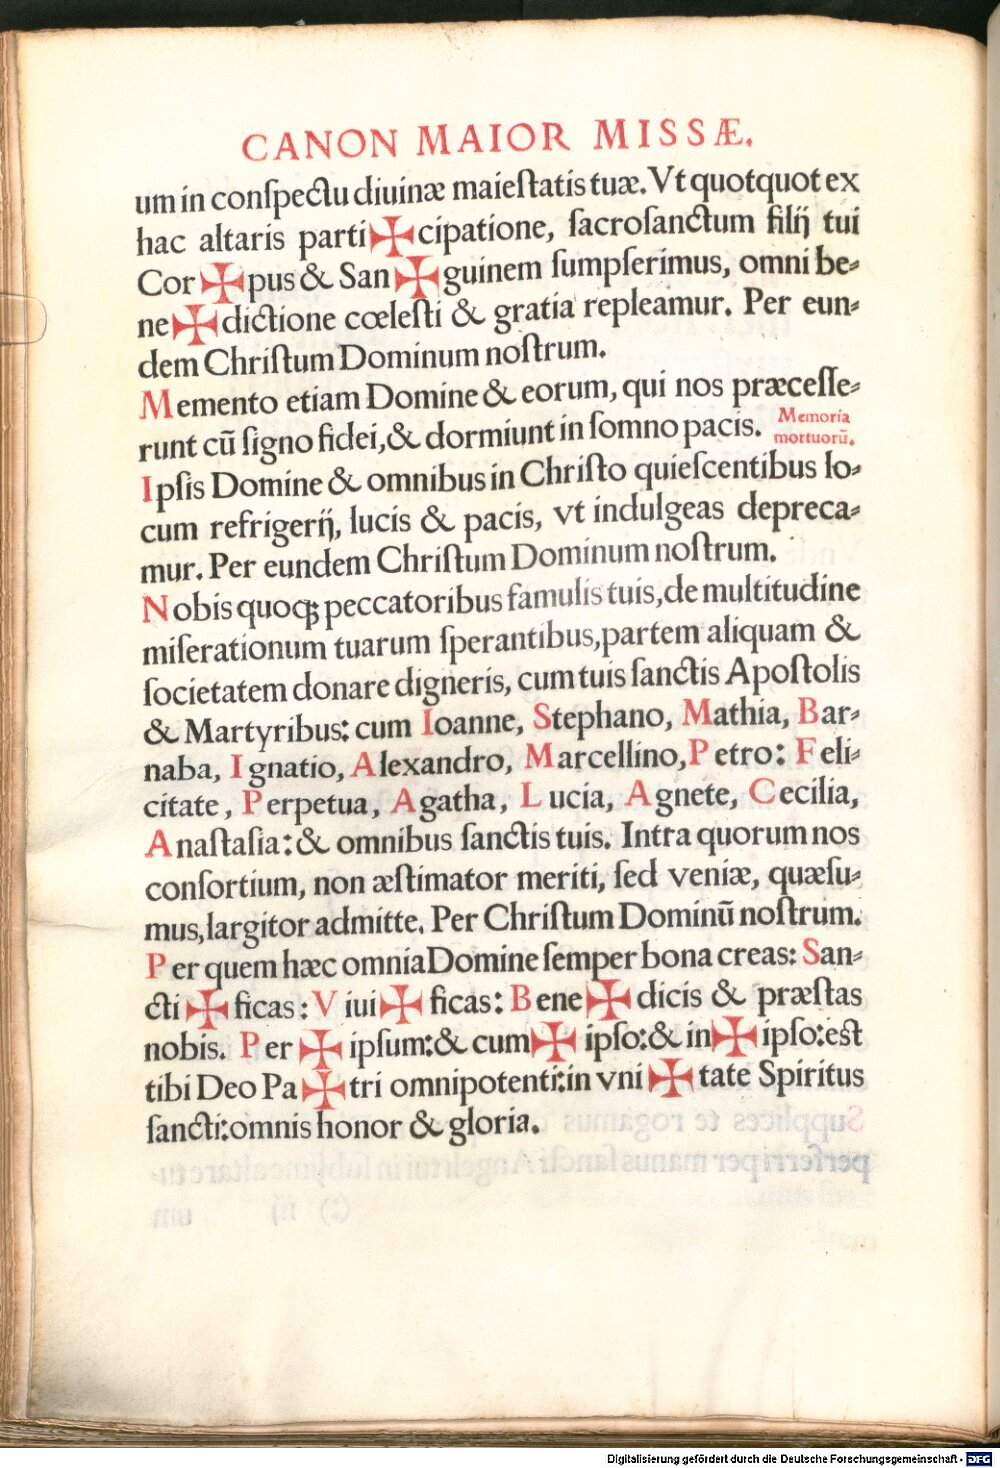 CANON MAIOR MISSÆ.
um in conſpectu diuinæ maieſtatis tuæ. Vt quotquot ex
hac altaris parti✠cipatione, ſacroſanctum filĳ tui
Cor✠pus & San✠guinem ſumpſerimus, omni be⸗
ne✠dictione cœleſti & gratia repleamur. Per eun⸗
dem Chriſtum Dominum noſtrum.
Memento etiam Domine & eorum, qui nos præceſſe⸗
runt cū ſigno fidei, & dormiunt in ſomno pacis. Memoria
mortuorū.
Ipſis Domine & omnibus in Chriſto quieſcentibus lo⸗
cum refrigerĳ, lucis & pacis, vt indulgeas depreca⸗
mur. Per eundem Chriſtum Dominum noſtrum.
Nobis quoqꝫ peccatoribus famulis tuis, de multitudine
miſerationum tuarum ſperantibus, partem aliquam &
ſocietatem donare digneris, cum tuis ſanctis Apoſtolis
& Martyribus: cum Ioanne, Stephano, Mathia, Bar⸗
naba, Ignatio, Alexandro, Marcellino, Petro: Feli⸗
citate, Perpetua, Agatha, Lucia, Agnete, Cecilia,
Anaſtaſia: & omnibus ſanctis tuis. Intra quorum nos
conſortium, non æſtimator meriti, ſed veniæ, quæſu⸗
mus, largitor admitte. Per Chriſtum Dominū noſtrum.
Per quem hæc omnia Domine ſemper bona creas: San⸗
cti✠ficas: Viui✠ficas: Bene✠dicis & præſtas
nobis. Per ✠ ipſum: & cum✠ ipſo: & in✠ipſo: eſt
tibi Deo Pa✠tri omnipotenti: in vni✠tate Spiritus
ſancti: omnis honor & gloria.
Digitalisierung gefördert durch die Deutsche Forschungsgemeinschaft - DFG